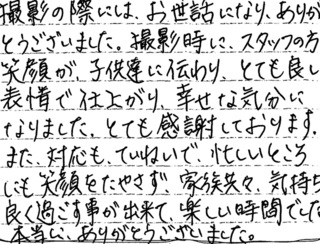 撮影の際には、お世話になり、ありが
とうございました。撮影時に、スタッフの方
笑顔が、子供達に伝わり、とても良い
表情で仕上がり、幸せな気分に
なりました。とても感謝しております。
また、対応も、ていねいで、忙しいところ
にも笑顔をたやさず、家族共々、気持ち
良く過ごす事が出来て、楽しい時間でした
本当に、ありがとうございました。